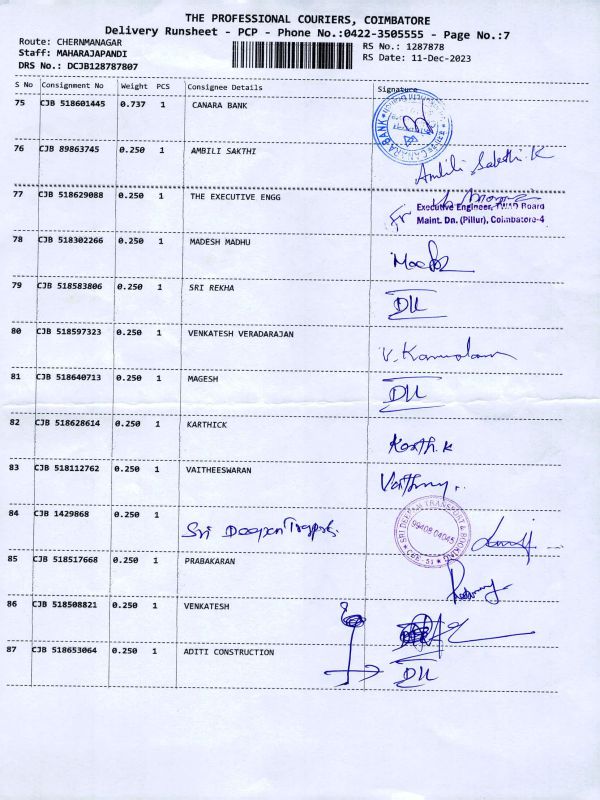 THE PROFESSIONAL COURIERS, COIMBATORE
Delivery Runsheet - PCP - Phone No.:0422-3505555 - Page No.:7
Route: CHERNMANAGAR
RS No.: 1287878
Staff: MAHARAJAPANDI
RS Date: 11-Dec-2023
DRS No.: DCJB128787807
S No Consignment No Weight PCS Consignee Details Signature
75 CJB 518601445 0.737 1 CANARA BANK
76 CJB 89863745 0.250 1 AMBILI SAKTHI Ambili Sakthi.K
77 CJB 518629088 0.250 1 THE EXECUTIVE ENGG
Executive Engineer, TWAD Board
Maint. Dn. (Pillur), Coimbatore-4
78 CJB 518302266 0.250 1 MADESH MADHU
79 CJB 518583806 0.250 1 SRI REKHA
80 CJB 518597323 0.250 1 VENKATESH VERADARAJAN
81 CJB 518640713 0.250 1 MAGESH
82 CJB 518628614 0.250 1 KARTHICK Karthi.k
83 CJB 518112762 0.250 1 VAITHEESWARAN
84 CJB 1429868 0.250 1 Sri Deepan
99408 04045
85 CJB 518517668 0.250 1 PRABAKARAN
86 CJB 518508821 0.250 1 VENKATESH
87 CJB 518653064 0.250 1 ADITI CONSTRUCTION